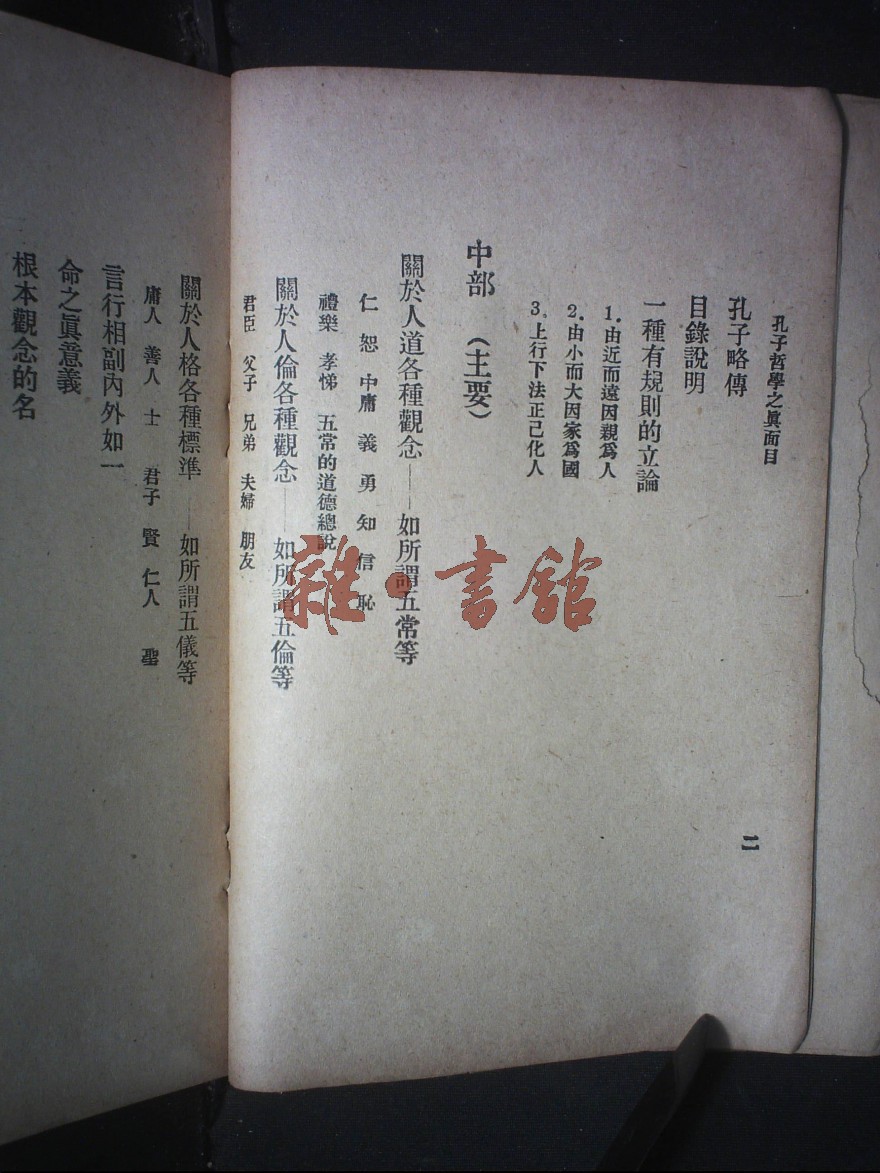 孔子哲學之眞面目
二
孔子略傳
目錄說明
一種有規則的立論
1.由近而遠因親爲人
2.由小而大因家爲國
3.上行下法正己化人
中部 (主要)
關於人道各種觀念——如所謂五常等
仁 恕 中庸 義 勇 知 信 恥
禮樂 孝悌 五常的道德總說
關於人倫各種觀念——如所謂五倫等
君臣 父子 兄弟 夫婦 朋友
關於人格各種標準——如所謂五儀等
庸人 善人 士 君子 賢 仁人 聖
言行相副內外如一
命之眞意義
根本觀念的名
雜·書館